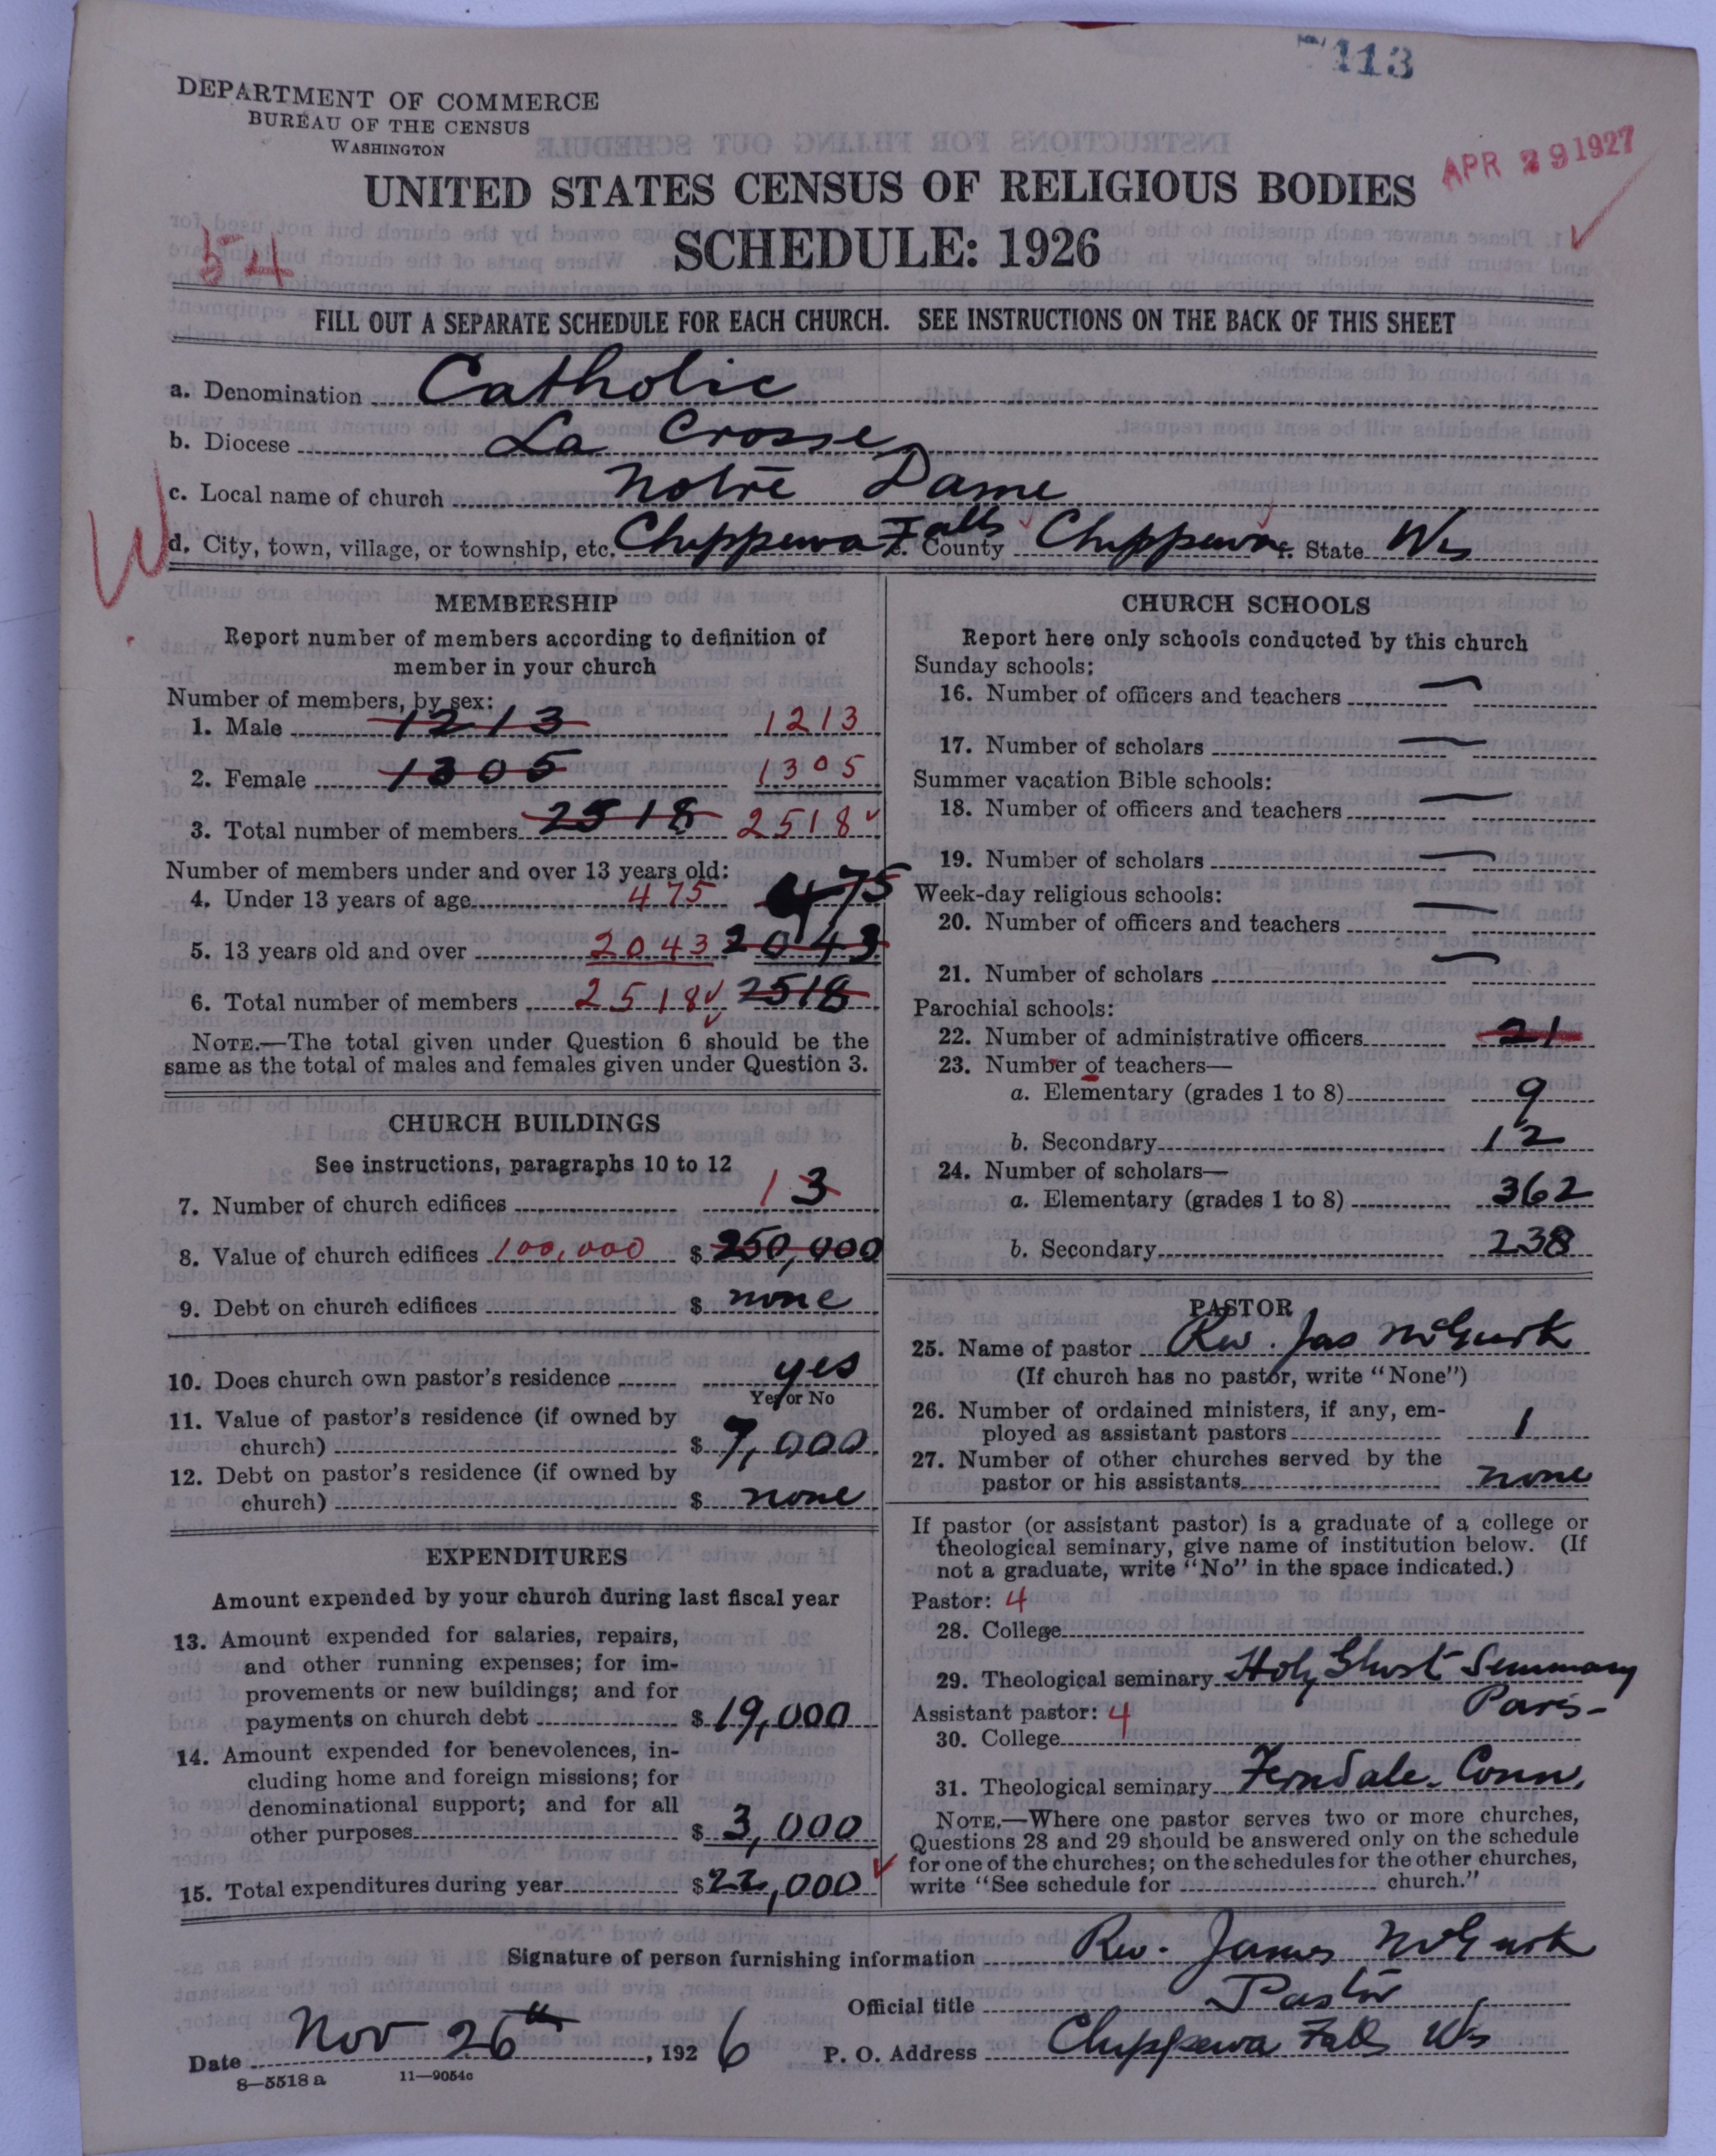 7113
DEPARTMENT OF COMMERCE
BUREAU OF THE CENSUS
WASHINGTON
APR 29 1927
UNITED STATES CENSUS OF RELIGIOUS BODIES
SCHEDULE: 1926
54
FILL OUT A SEPARATE SCHEDULE FOR EACH CHURCH. SEE INSTRUCTIONS ON THE BACK OF THIS SHEET
a. Denomination Catholic
b. Diocese La Crosse
c. Local name of church Notre Dame
W
d. City, town, village, or township, etc. Chippewa Falls County Chippewa State Wis
MEMBERSHIP
Report number of members according to definition of
member in your church
Number of members, by sex:
1. Male 1213 1213
2. Female 1305 1305
3. Total number of members 2518 2518
Number of members under and over 13 years old:
4. Under 13 years of age 475 475
5. 13 years old and over 2043 2043
6. Total number of members 2518 2518
NOTE.—The total given under Question 6 should be the
same as the total of males and females given under Question 3.
CHURCH BUILDINGS
See instructions, paragraphs 10 to 12
7. Number of church edifices 1 3
8. Value of church edifices 100,000 $ 250,000
9. Debt on church edifices $ none
10. Does church own pastor's residence yes
Yes or No
11. Value of pastor's residence (if owned by
church) $ 7,000
12. Debt on pastor's residence (if owned by
church) $ none
EXPENDITURES
Amount expended by your church during last fiscal year
13. Amount expended for salaries, repairs,
and other running expenses; for im-
provements or new buildings; and for
payments on church debt $ 19,000
14. Amount expended for benevolences, in-
cluding home and foreign missions; for
denominational support; and for all
other purposes $ 3,000
15. Total expenditures during year $ 22,000
CHURCH SCHOOLS
Report here only schools conducted by this church
Sunday schools:
16. Number of officers and teachers —
17. Number of scholars —
Summer vacation Bible schools:
18. Number of officers and teachers —
19. Number of scholars —
Week-day religious schools:
20. Number of officers and teachers —
21. Number of scholars —
Parochial schools:
22. Number of administrative officers 21
23. Number of teachers—
a. Elementary (grades 1 to 8) 9
b. Secondary 12
24. Number of scholars—
a. Elementary (grades 1 to 8) 362
b. Secondary 238
PASTOR
25. Name of pastor Rev. Jas McGurk
(If church has no pastor, write "None")
26. Number of ordained ministers, if any, em-
ployed as assistant pastors 1
27. Number of other churches served by the
pastor or his assistants none
If pastor (or assistant pastor) is a graduate of a college or
theological seminary, give name of institution below. (If
not a graduate, write "No" in the space indicated.)
Pastor: 4
28. College
29. Theological seminary Holy Ghost Seminary
Paris-
Assistant pastor: 4
30. College
31. Theological seminary Ferndale. Conn.
NOTE.—Where one pastor serves two or more churches,
Questions 28 and 29 should be answered only on the schedule
for one of the churches; on the schedules for the other churches,
write "See schedule for church."
Signature of person furnishing information Rev. James McGurk
Official title Pastor
Date Nov 26th, 1926 P. O. Address Chippewa Falls Wis
8—5518 a 11—9054c